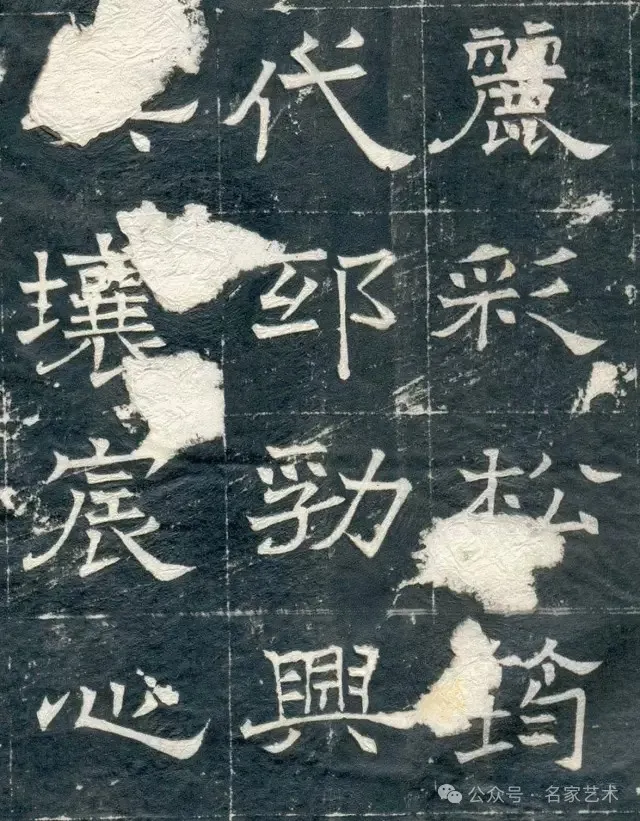 麗彩松筠
代邸勃興
壤宸心
公众号 · 名家艺术